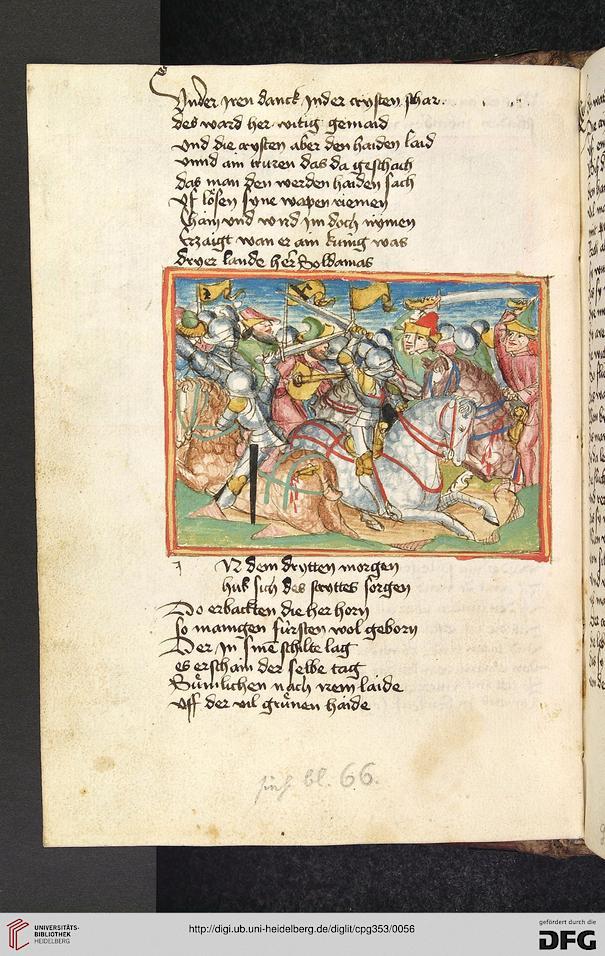 Vnder iren danck in der cristen schar
des ward her witig gemaid
vnd die cristen aber den haiden laid
vnnd ain truren das da geschach
das man den werden haiden sach
vf lösen syne wapen riemen
Chain vnd ward im doch nyemen
Erzaigt wan er ain kunig was
dryer lande her Boldamas
Vz dem drytten morgen
hub sich des strittes sorgen
Do erbackten die her horn
so mamgen fürsten wol geborn
Der in sine schilte lag
es erschain der selbe tag
Kümlichen nach irem laide
vff der vil grünen haide
bl. 66.
UNIVERSITÄTS-
BIBLIOTHEK
HEIDELBERG
http://digi.ub.uni-heidelberg.de/diglit/cpg353/0056
gefördert durch die
DFG